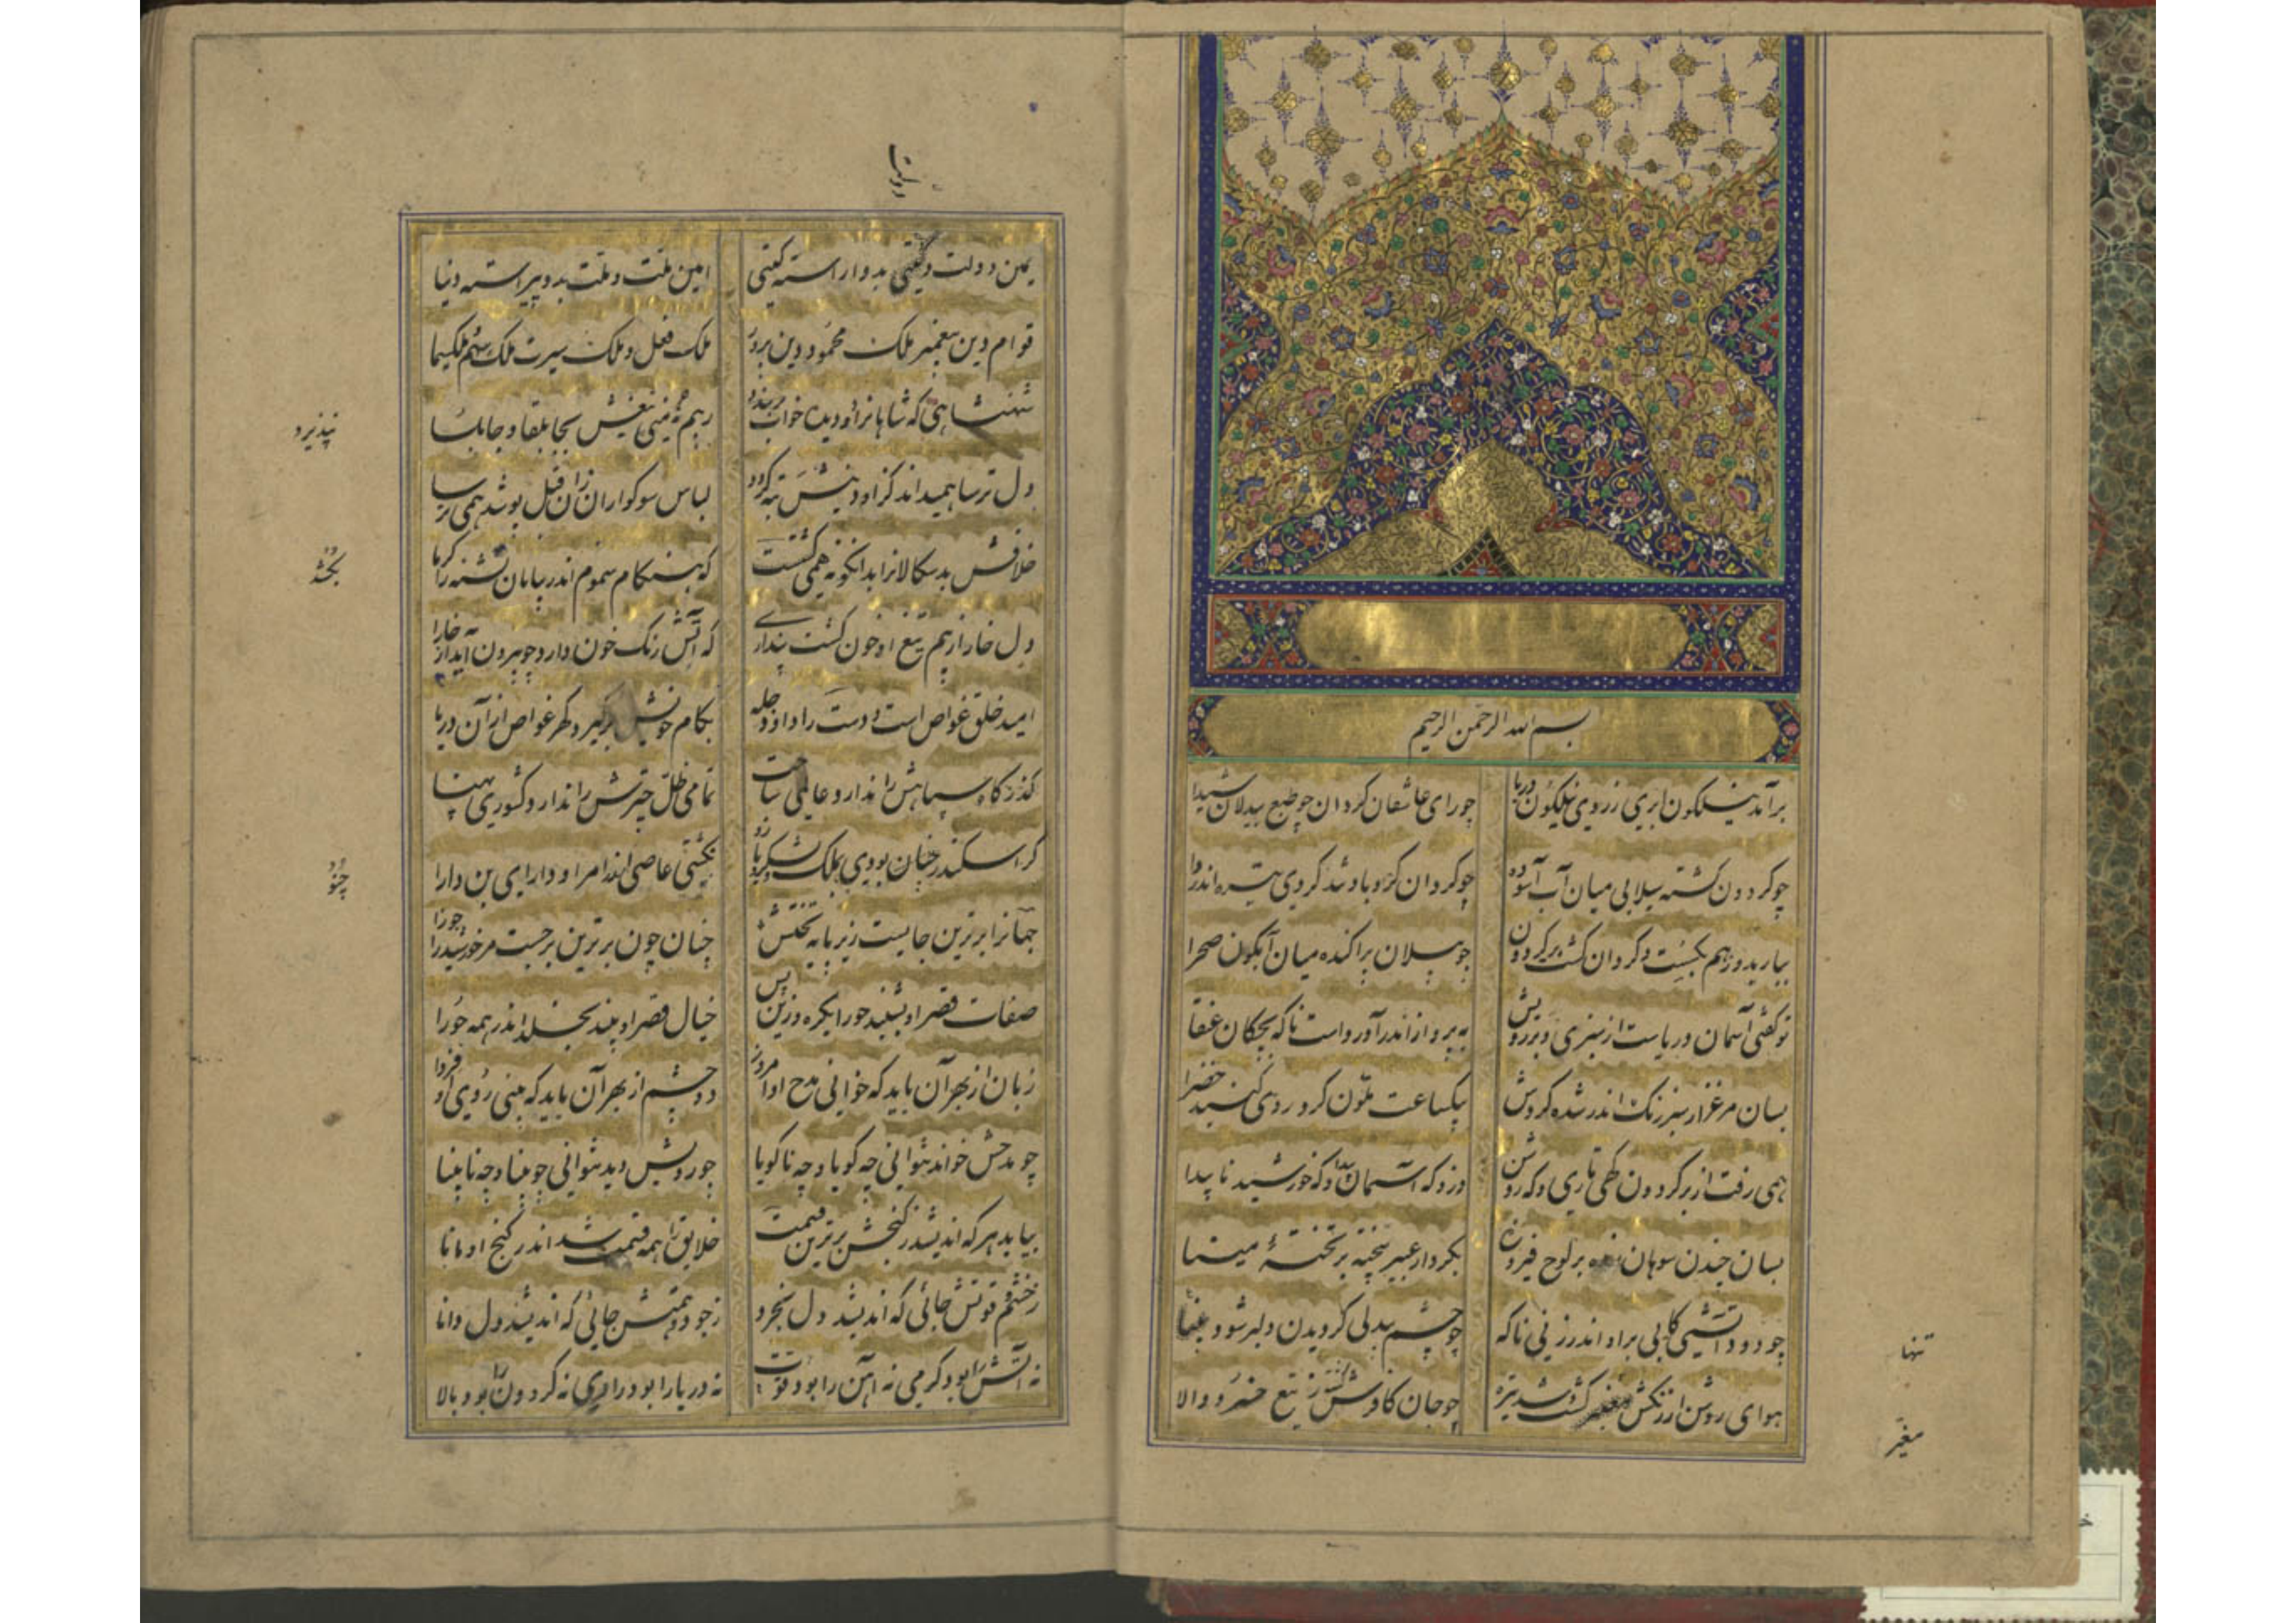 بسم الله الرحمن الرحیم
برآمد نیلگون ابری ز روی نیلگون دریا چو رای عاشقان گردان چو طبع بیدلان شیدا
چو گردون گشته سیلابی میان آب آسوده چو گردان گردباد تند گردی تیره اندروا
ببارید و ز هم بگسست و گردان گشت بر گردون چو پیلان پراکنده میان آبگون صحرا
تو گفتی آسمان دریاست از سبزی و بر رویش به پرواز اندر آورد است ناگه بچکان عنقا
بسان مرغزار سبز رنگ اندر شده گردش بیکساعت ملون کرد روی گنبد خضرا
همی رفت از بر گردون گهی تاری و گه روشن وزو گه آسمان پیدا و گه خورشید ناپیدا
بسان چندن سوهان زده بر لوح فیروزه بکردار عبیر بیخته بر تختهٔ مینا
چو دودین آتشی کابی براو اندر زنی ناگه چو چشم بیدلی کز دیدن دلبر شود بینا
هوای روشن از رنگش مغبر گشت و شد تیره چو جان کافر کشته ز تیغ خسرو والا
تنها
مغبر
دولت
یمین دولت و گیتی بدو آراسته گیتی امین ملت و ملت بدو پیراسته دنیا
قوام دین پیغمبر ملک محمود دین پرور ملک فعل و ملک سیرت ملک سهم و ملک سیما
شهنشاهی که شاهانرا ز دیده خواب برباید ز بیم نه منی تیغش بجابلقا و جابلسا
دل ترسا همیداند کزاو دینش تبه گردد لباس سوگواران زان قبل پوشد همی ترسا
خلافش بدسگالانرا بدانگونه همی کشت که هنگام سموم اندر بیابان تشنه را گرما
دل خارا ز بیم تیغ او خون گشت پنداری که آتش رنگ خون دارد چو بیرون آید از خارا
امید خلق غواص است و دست راد او دجله بکام خویش برگیرد گهر غواص از آن دریا
گذرگاه سپاهش را ندارد عالمی ساحت تمامی ظل چترش را ندارد کشوری پهنا
گر اسکندر چنان بودی بملک و لشکر و بازو نگشتی عاصی اندر امر او دارای بن دارا
جهانرا برترین جایست زیر پایه تختش چنان چون برترین برجست مر خورشید را جوزا
صفات قصر او بشنید حورا یکره و زین پس خیال قصر او بیند بخلد اندر همه حورا
زبان از بهر آن باید که خوانی مدح او امروز دو چشم از بهر آن باید که بینی روی او فردا
چو مدحش خواند نتوانی چه گویا و چه ناگویا چو رویش دید نتوانی چو بینا و چه نابینا
بیابد هر که اندیشد ز گنجش برترین قسمت خلایق را همه قسمت شد اندر گنج او مانا
ز خشم و قوتش جائی که اندیشد دل بخرد ز جود و همتش جائی که اندیشد دل دانا
نه آتش را بود گرمی نه آهن را بود قوت نه دریا را بود رادی نه گردون را بود بالا
نپذیرد
بخشد
چنو